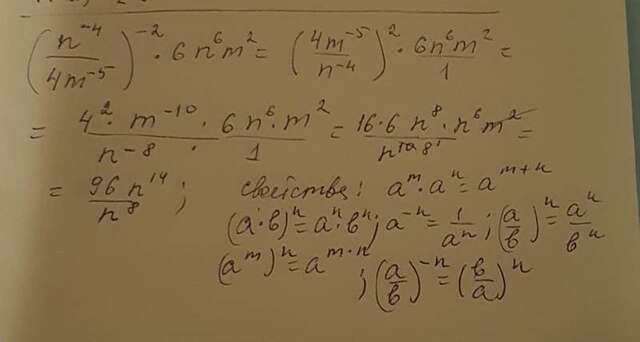 (n⁻⁴/4m⁻⁵)⁻² · 6n⁶m² = (4m⁻⁵/n⁻⁴)² · 6n⁶m²/1 =
= 4² · m⁻¹⁰/n⁻⁸ · 6n⁶ · m²/1 = 16·6 n⁸ · n⁶ m²/m¹⁰ ⁸ =
= 96n¹⁴/m⁸ ; свойства: aᵐ · aⁿ = aᵐ⁺ⁿ
(a·b)ⁿ = aⁿ·bⁿ; a⁻ⁿ = 1/aⁿ ; (a/b)ⁿ = aⁿ/bⁿ
(aᵐ)ⁿ = aᵐ·ⁿ
; (a/b)⁻ⁿ = (b/a)ⁿ